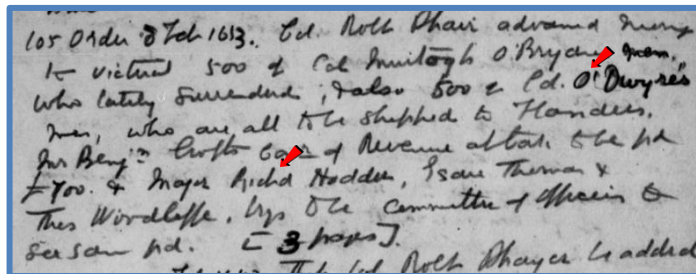 105 Order 8 Feb 1653. Col. Robt Phair advanced money
to victual 500 of Col Murtogh O'Bryens men.
who lately surrendered; & also 500 of Col. O'Dwyre's
men, who are all to be shipped to Flanders.
Mr Benjn Crofts Comr of Revenue at Cork to be pd
£700. & Major Richd Hodder, Isaac Thomas &
Thos Woodliffe,
the committee of officers to
pd. [3 pages].
Col Robt Phayer